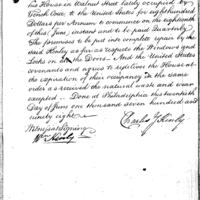 his House in Walnut Street lately occupied by
Tench Coxe, to the United States for eight hundred
Dollars per Annum to commence on the eighteenth
of this (June) instant and to be paid Quarterly
The premises to be put into complete repair by the
said Henly as far as respects the Windows and
Locks on the Doors – And the United States
covenants and agrees to redeliver the House at
the expiration of their occupancy in the same
order as received the natural waste and wear
excepted – Done at Philadelphia this twentieth
Day of June one thousand seven hundred and
ninety eight
Witnesses Signing